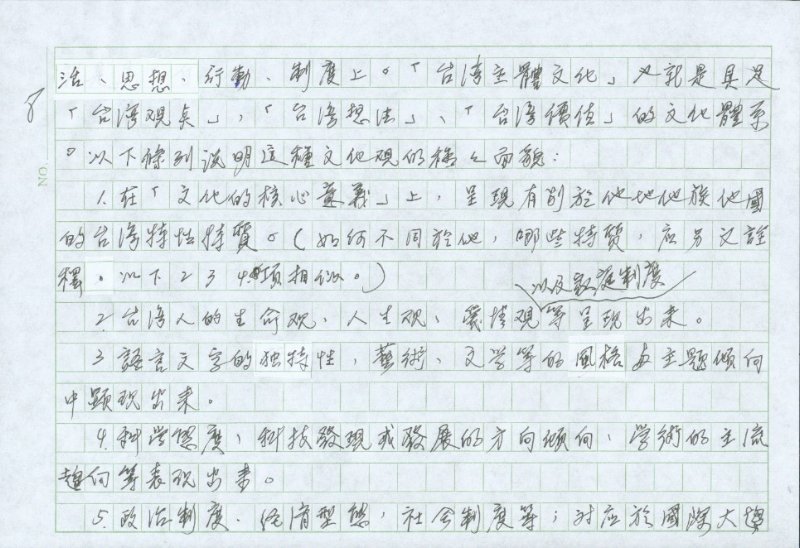 8
治、思想、行動、制度上。「台湾主體文化」也就是具足
「台湾观点」,「台湾想法」、「台湾價值」的文化體系
。以下條列説明這種文化观的種種面貌:
1.在「文化的核心意義」上,呈現有别於他地他族他國
的台湾特性特質。(如何不同於他,哪些特質,应另文詮
釋。以下234項相似。)
以及家庭制度
2.台湾人的生命观、人生观、 观等呈現出来。
3.語言文字的独特性,藝術、文学等的風格与主題傾向
中顯現出来。
4.科学態度,科技發現或發展的方向傾向,学術的主流
趨向等表現出来。
5.政治制度、经濟型態,社会制度等;对应於國際大
NO.